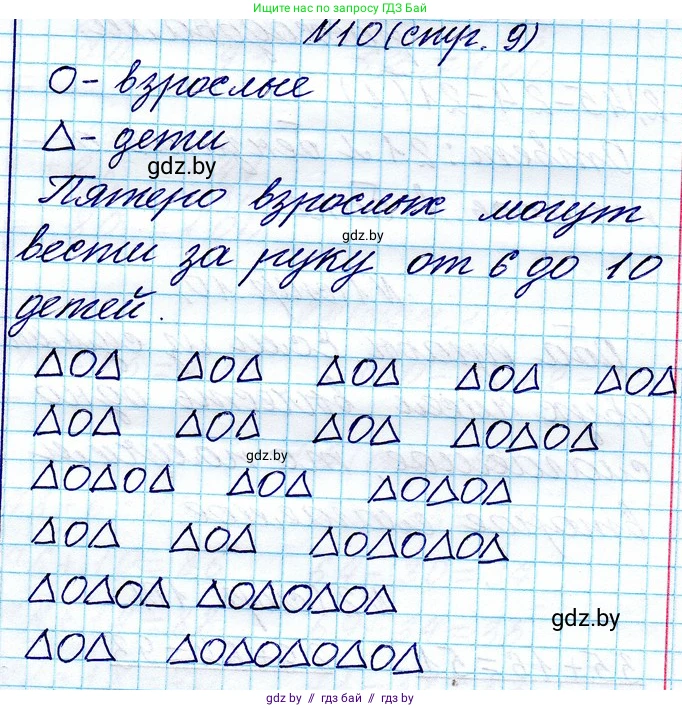 Ищите нас по запросу ГДЗ Бай
N10 (стр. 9)
О- взрослые
Δ- дети
gdz.by
Пятеро взрослых могут
gdz.by
вести за руку от 6 до 10
детей.
ΔОΔ ΔОΔ ΔОΔ ΔОΔ ΔОΔ
ΔОΔ ΔОΔ ΔОΔ ΔОΔОΔ
gdz.by
ΔОΔОΔ ΔОΔ ΔОΔОΔ
ΔОΔ ΔОΔ ΔОΔОΔОΔ
ΔОΔОΔ ΔОΔОΔОΔ
gdz.by
ΔОΔ ΔОΔОΔОΔОΔ
gdz.by // гдз бай // гдз by